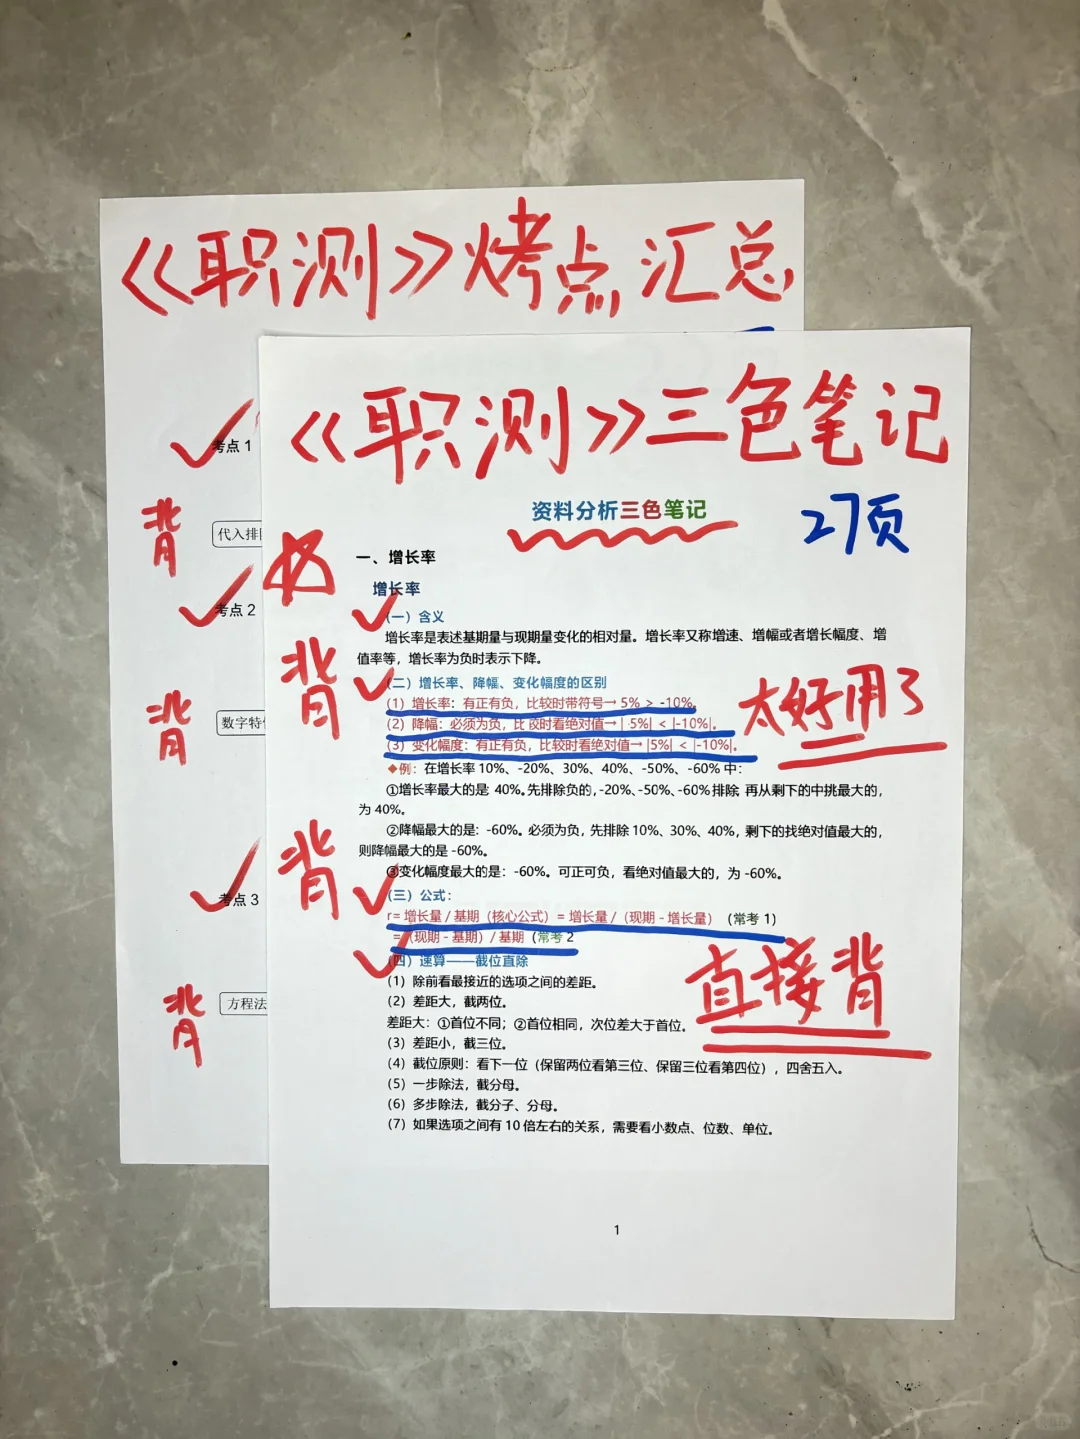 《职测》烤点汇总
考点 1
背
代入排
考点 2
背
数字特
考点 3
背
方程法
《职测》三色笔记
27页
资料分析三色笔记
一、增长率
增长率
(一) 含义
增长率是表述基期量与现期量变化的相对量。增长率又称增速、增幅或者增长幅度、增
值率等，增长率为负时表示下降。
背
(二) 增长率、降幅、变化幅度的区别
(1) 增长率：有正有负，比较时带符号→ 5% > -10%。
(2) 降幅：必须为负，比较时看绝对值→| 5%| < |-10%|。
(3) 变化幅度：有正有负，比较时看绝对值→|5%| < |-10%|。
太好用了
◆例：在增长率 10%、-20%、30%、40%、-50%、-60% 中：
①增长率最大的是 40%。先排除负的，-20%、-50%、-60% 排除 再从剩下的中挑最大的，
为 40%。
②降幅最大的是：-60%。必须为负，先排除 10%、30%、40%，剩下的找绝对值最大的，
则降幅最大的是 -60%。
③变化幅度最大的是：-60%。可正可负，看绝对值最大的，为 -60%。
背
(三) 公式：
r= 增长量 / 基期（核心公式）= 增长量 /（现期 - 增长量）（常考 1)
=（现期 - 基期）/ 基期（常考 2
(四) 速算——截位直除
(1) 除前看最接近的选项之间的差距。
(2) 差距大，截两位。
差距大：①首位不同；②首位相同，次位差大于首位。
(3) 差距小，截三位。
直接背
(4) 截位原则：看下一位（保留两位看第三位、保留三位看第四位），四舍五入。
(5) 一步除法，截分母。
(6) 多步除法，截分子、分母。
(7) 如果选项之间有 10 倍左右的关系，需要看小数点、位数、单位。
1